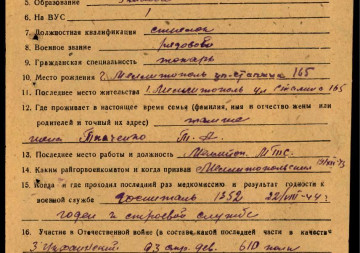 5. Образование
6. На ВУС 1
7. Должностная квалификация стрелок
8. Военное звание рядовой
9. Гражданская специальность токарь
10. Место рождения г. Мелитополь ул. Сталина 165
11. Последнее место жительства г. Мелитополь ул Сталина 165
12. Где проживает в настоящее время семья (фамилия, имя и отчество жены или
родителей и точный их адрес) там же
жена Ткаченко Т. А.
13. Последнее место работы и должность Мелитоп. МТС.
14. Каким райгорвоенкоматом и когда призван Мелитопольским
15. Когда и где проходил последний раз медкомиссию и результат годности к
военной службе госпиталь 1352 22/VIII-44 г
годен к строевой службе
16. Участие в Отечественной войне (в составе какой последней части в качестве
3 Украинский. 93 стр. див. 610 полк